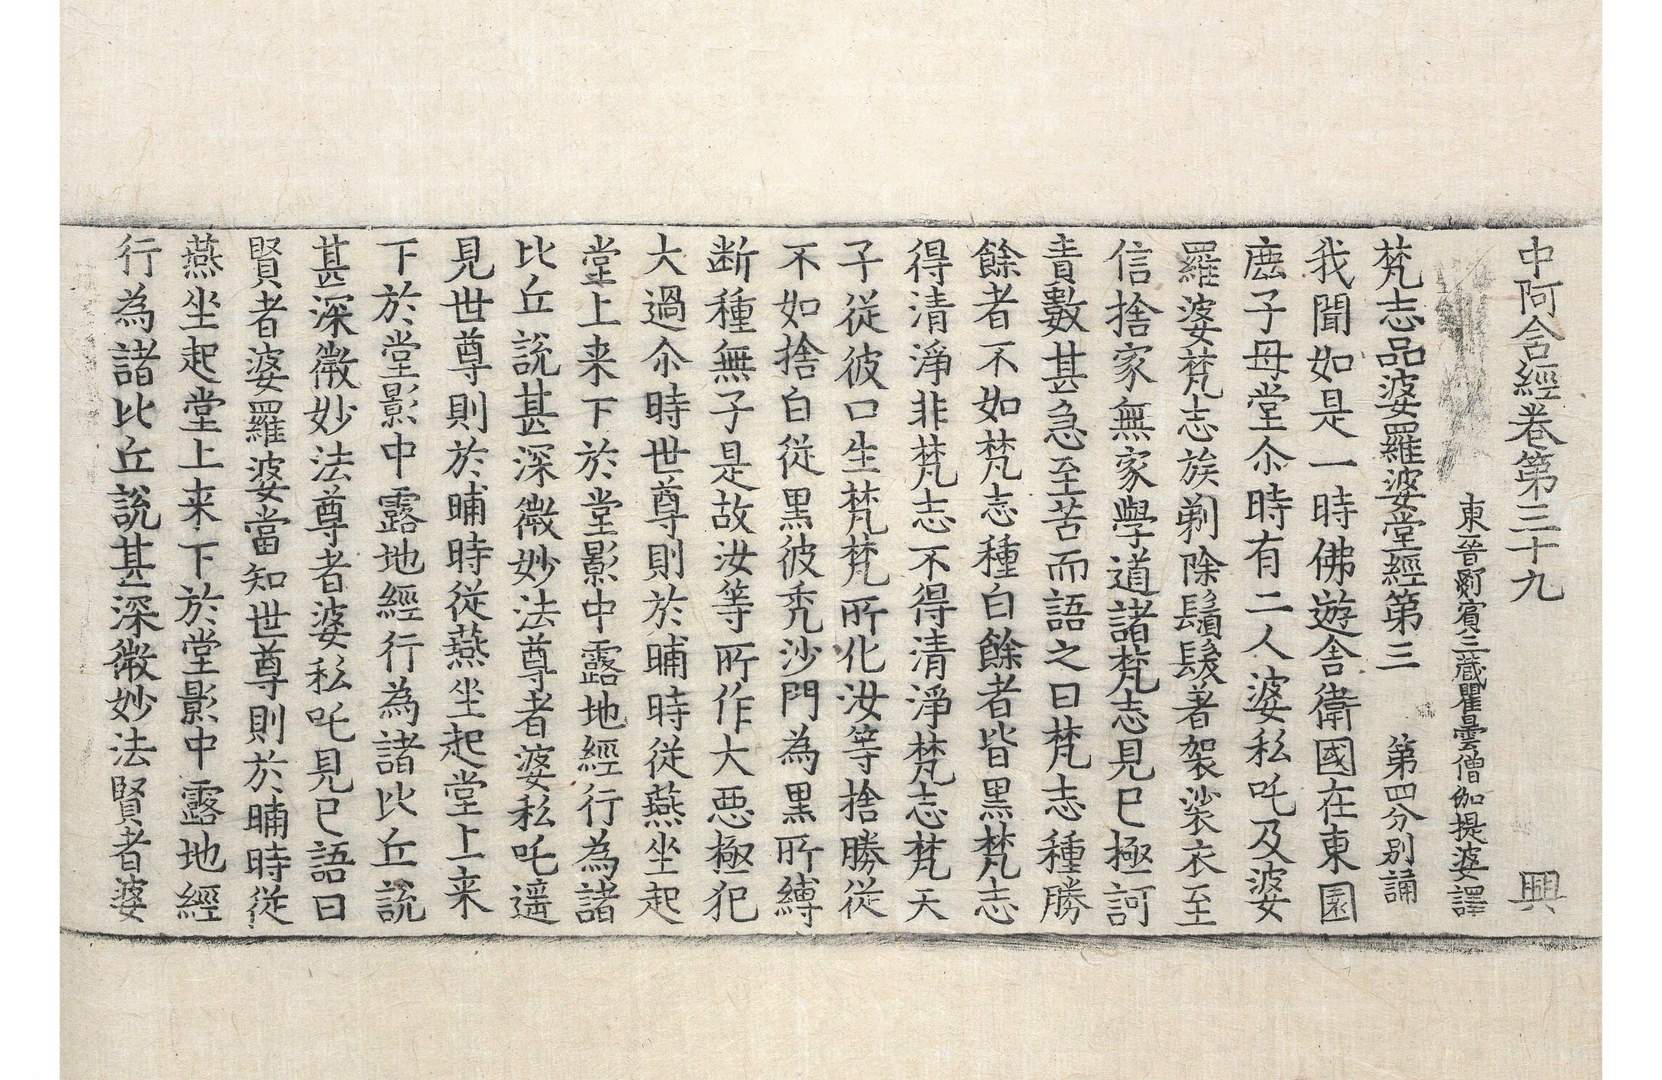 中阿含經卷第三十九　興
東晉罽賓三藏瞿曇僧伽提婆譯
梵志品婆羅婆堂經第三　第四分別誦
我聞如是一時佛遊舍衛國在東園
鹿子母堂尒時有二人婆私吒及婆
羅婆梵志族剃除鬚髮著袈裟衣至
信捨家無家學道諸梵志見已極訶
責數甚急至苦而語之曰梵志種勝
餘者不如梵志種白餘者皆黒梵志
得清淨非梵志不得清淨梵志梵天
子從彼口生梵梵所化汝等捨勝從
不如捨白從黒彼禿沙門為黒所縛
断種無子是故汝等所作大惡極犯
大過尒時世尊則於晡時從燕坐起
堂上来下於堂影中露地經行為諸
比丘說甚深微妙法尊者婆私吒遥
見世尊則於晡時從燕坐起堂上来
下於堂影中露地經行為諸比丘說
甚深微妙法尊者婆私吒見已語曰
賢者婆羅婆當知世尊則於晡時從
燕坐起堂上来下於堂影中露地經
行為諸比丘說甚深微妙法賢者婆